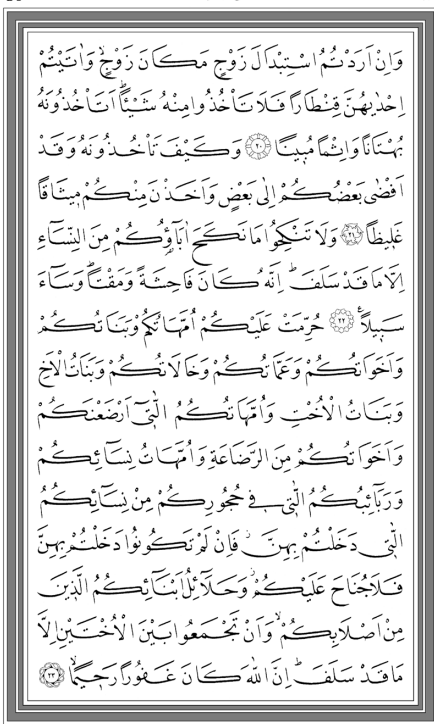 وَاِنْ اَرَدْتُمُ اسْتِبْدَالَ زَوْجٍ مَكَانَ زَوْجٍۙ وَاٰتَيْتُمْ
اِحْدٰيهُنَّ قِنْطَارًا فَلَا تَأْخُذُوا مِنْهُ شَيْـًٔاۜ اَتَأْخُذُونَهُ
بُهْتَانًا وَاِثْمًا مُبِينًا ﴿٢٠﴾ وَكَيْفَ تَأْخُذُونَهُ وَقَدْ
اَفْضٰى بَعْضُكُمْ اِلٰى بَعْضٍ وَاَخَذْنَ مِنْكُمْ مِيثَاقًا
غَلِيظًا ﴿٢١﴾ وَلَا تَنْكِحُوا مَا نَكَحَ اٰبَٓاؤُ۬كُمْ مِنَ النِّسَٓاءِ
اِلَّا مَا قَدْ سَلَفَۜ اِنَّهُ كَانَ فَاحِشَةً وَمَقْتًاۜ وَسَٓاءَ
سَبِيلًا۟ ﴿٢٢﴾ حُرِّمَتْ عَلَيْكُمْ اُمَّهَاتُكُمْ وَبَنَاتُكُمْ
وَاَخَوَاتُكُمْ وَعَمَّاتُكُمْ وَخَالَاتُكُمْ وَبَنَاتُ الْاَخِ
وَبَنَاتُ الْاُخْتِ وَاُمَّهَاتُكُمُ الّٰت۪ٓي اَرْضَعْنَكُمْ
وَاَخَوَاتُكُمْ مِنَ الرَّضَاعَةِ وَاُمَّهَاتُ نِسَٓائِكُمْ
وَرَبَٓائِبُكُمُ الّٰتِي فِي حُجُورِكُمْ مِنْ نِسَٓائِكُمُ
الّٰتِي دَخَلْتُمْ بِهِنَّۘ فَاِنْ لَمْ تَكُونُوا دَخَلْتُمْ بِهِنَّ
فَلَا جُنَاحَ عَلَيْكُمْۘ وَحَلَٓائِلُ اَبْنَٓائِكُمُ الَّذِينَ
مِنْ اَصْلَابِكُمْۙ وَاَنْ تَجْمَعُوا بَيْنَ الْاُخْتَيْنِ اِلَّا
مَا قَدْ سَلَفَۜ اِنَّ اللّٰهَ كَانَ غَفُورًا رَحِيمًاۙ ﴿٢٣﴾